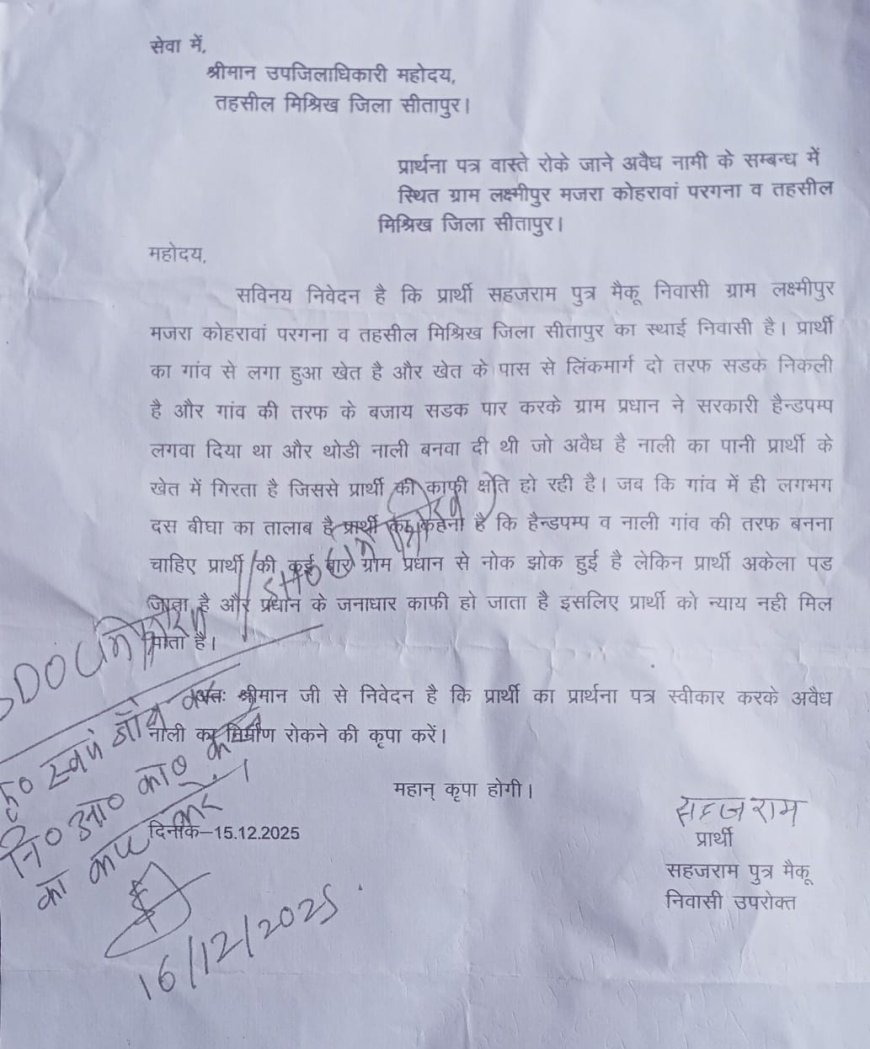 सेवा में,
श्रीमान उपजिलाधिकारी महोदय,
तहसील मिश्रिख जिला सीतापुर।
प्रार्थना पत्र वास्ते रोके जाने अवैध नामी के सम्बन्ध में
स्थित ग्राम लक्ष्मीपुर मजरा कोहरावां परगना व तहसील
मिश्रिख जिला सीतापुर।
महोदय,
सविनय निवेदन है कि प्रार्थी सहजराम पुत्र मैकू निवासी ग्राम लक्ष्मीपुर
मजरा कोहरावां परगना व तहसील मिश्रिख जिला सीतापुर का स्थाई निवासी है। प्रार्थी
का गांव से लगा हुआ खेत है और खेत के पास से लिंकमार्ग दो तरफ सडक निकली
है और गांव की तरफ के बजाय सडक पार करके ग्राम प्रधान ने सरकारी हैन्डपम्प
लगवा दिया था और थोडी नाली बनवा दी थी जो अवैध है नाली का पानी प्रार्थी के
खेत में गिरता है जिससे प्रार्थी की काफी क्षति हो रही है। जब कि गांव में ही लगभग
दस बीघा का तालाब है प्रार्थी का कहना है कि हैन्डपम्प व नाली गांव की तरफ बनना
चाहिए प्रार्थी की कई बार ग्राम प्रधान से नोक झोक हुई है लेकिन प्रार्थी अकेला पड
जाता है और प्रधान के जनाधार काफी हो जाता है इसलिए प्रार्थी को न्याय नही मिल
पाता है।
अतः श्रीमान जी से निवेदन है कि प्रार्थी का प्रार्थना पत्र स्वीकार करके अवैध
नाली का निर्माण रोकने की कृपा करें।
महान् कृपा होगी।
सहजराम
प्रार्थी
सहजराम पुत्र मैकू
निवासी उपरोक्त
दिनांक–15.12.2025
कृ० स्वयं जाँच कर
नि० आ० का०
का कष्ट करें।
16/12/2025